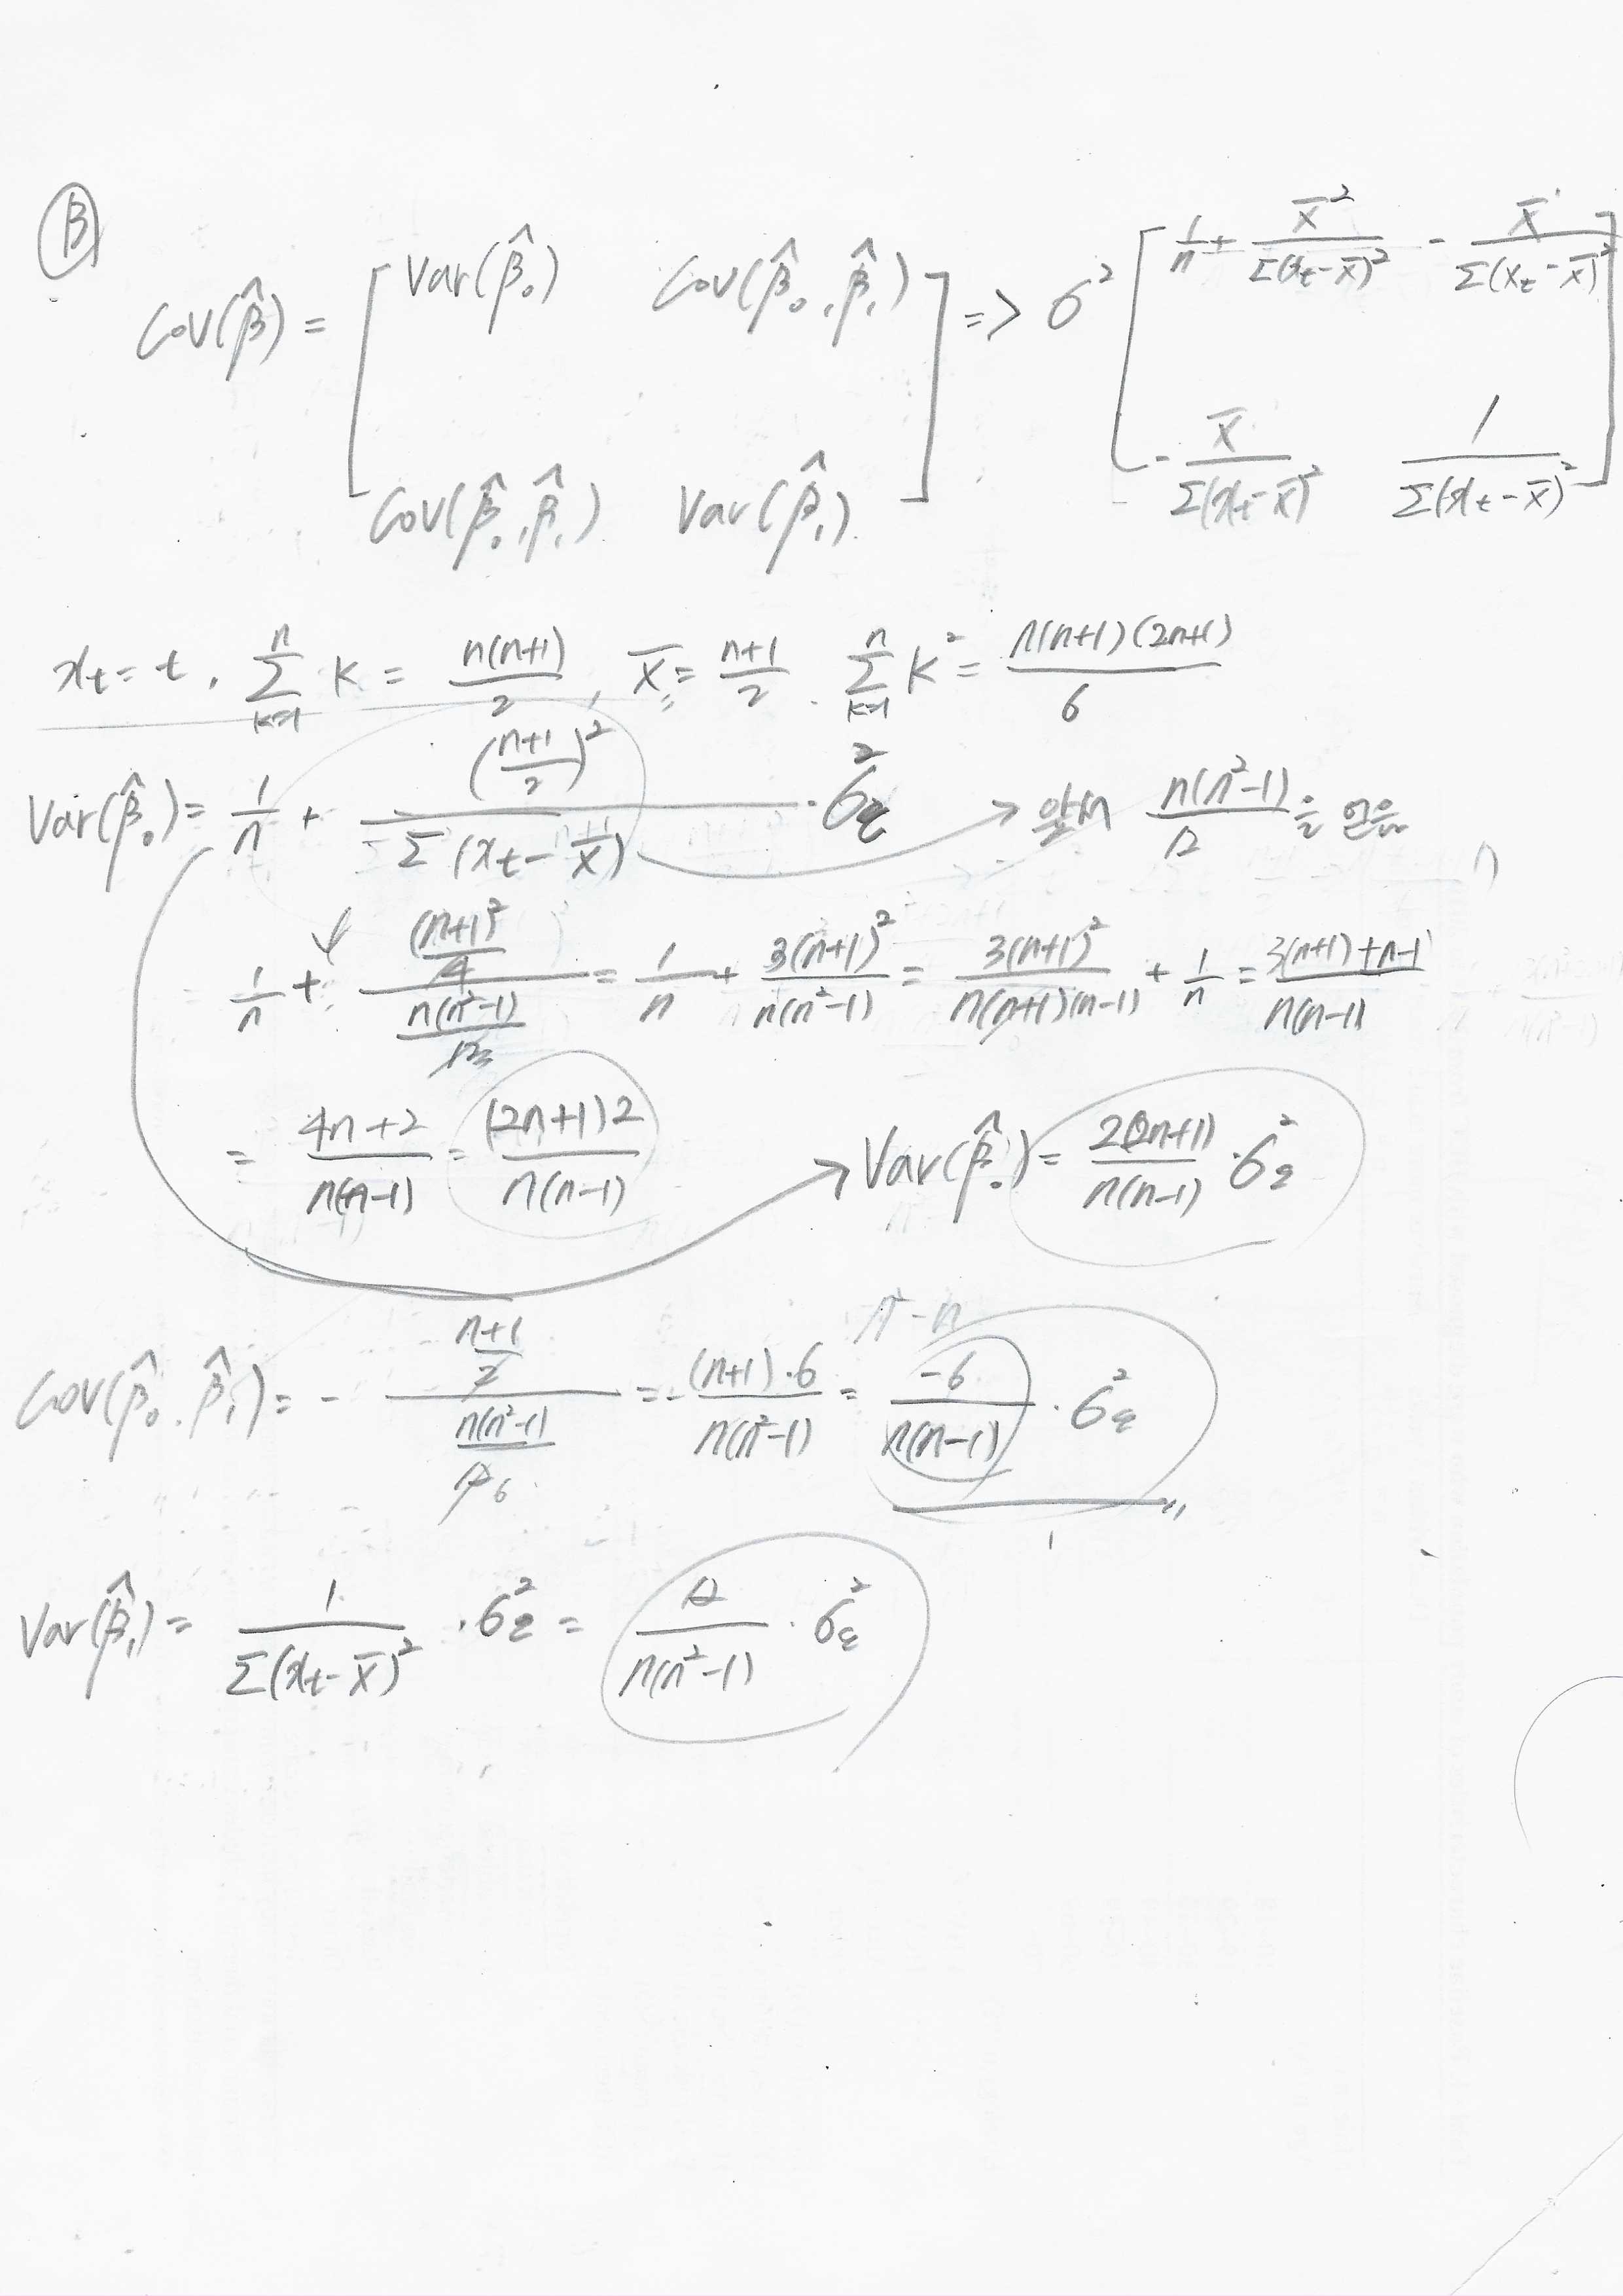 Ⓑ
Cov(β̂) = [ Var(β̂₀) Cov(β̂₀, β̂₁) ; Cov(β̂₀, β̂₁) Var(β̂₁) ] => σ² [ 1/n + x̄²/Σ(xₜ-x̄)² - x̄/Σ(xₜ-x̄)² ; - x̄/Σ(xₜ-x̄)² 1/Σ(xₜ-x̄)² ]
xₜ = t, Σₖ₌₁ⁿ k = n(n+1)/2, x̄ = (n+1)/2. Σₖ₌₁ⁿ k² = n(n+1)(2n+1)/6
Var(β̂₀) = 1/n + ((n+1)/2)²/Σ(xₜ-x̄) · σ²_ε → 앞서 n(n²-1)/12 을 얻음
1/n + ((n+1)²/4)/(n(n²-1)/12) = 1/n + 3(n+1)²/n(n²-1) = 3(n+1)²/n(n+1)(n-1) + 1/n = (3(n+1)+n-1)/n(n-1)
= (4n+2)/n(n-1) = (2n+1)2/n(n-1) → Var(β̂₀) = 2(2n+1)/n(n-1) · σ²_ε
n²-n
Cov(β̂₀, β̂₁) = - ((n+1)/2)/(n(n²-1)/12 6) = - (n+1)·6/n(n²-1) = -6/n(n-1) · σ²_ε
Var(β̂₁) = 1/Σ(xₜ-x̄)² · σ²_ε = 12/n(n²-1) · σ²_ε